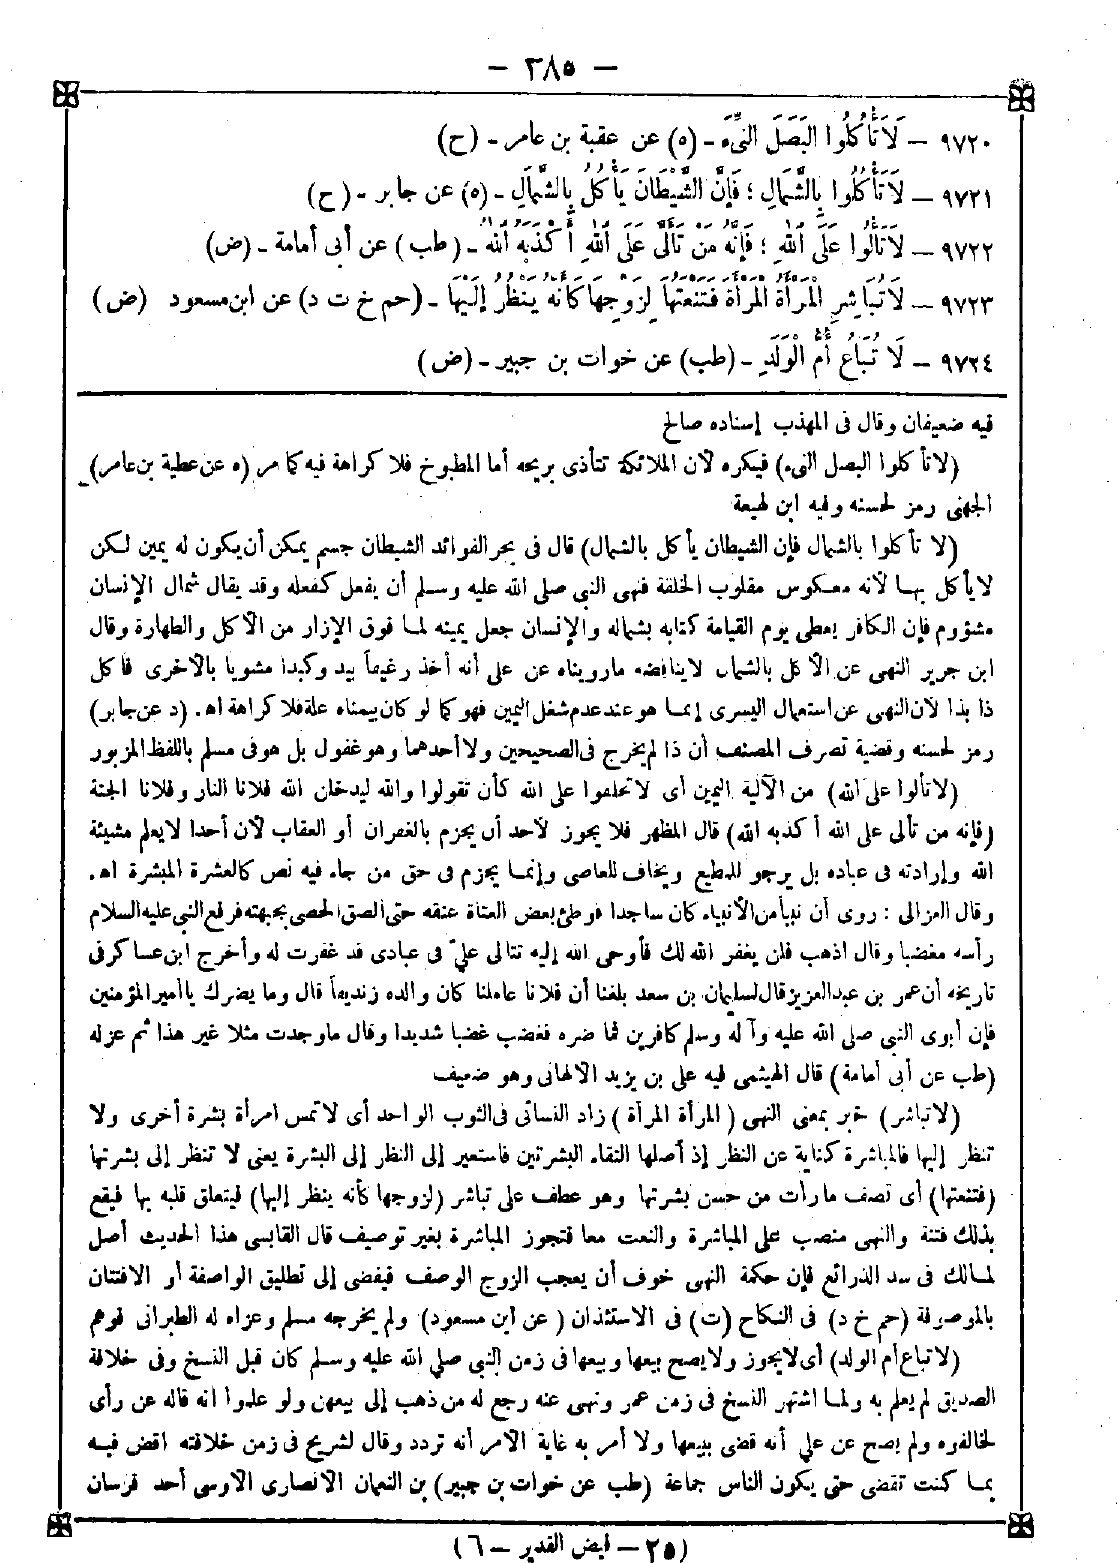 — ٣٨٥ —
٩٧٢٠ — لَا تَأْكُلُوا الْبَصَلَ النِّيءَ - (ه) عن عقبة بن عامر - (ح)
٩٧٢١ — لَا تَأْكُلُوا بِالشِّمَالِ ؛ فَإِنَّ الشَّيْطَانَ يَأْكُلُ بِالشِّمَالِ - (ه) عن جابر - (ح)
٩٧٢٢ — لَا تَأَلَّوْا عَلَى اللهِ ؛ فَإِنَّهُ مَنْ تَأَلَّى عَلَى اللهِ أَكْذَبَهُ اللهُ - (طب) عن أبى أمامة - (ض)
٩٧٢٣ — لَا تُبَاشِرِ الْمَرْأَةُ الْمَرْأَةَ فَتَنْعَتَهَا لِزَوْجِهَا كَأَنَّهُ يَنْظُرُ إِلَيْهَا - (حم خ ت د) عن ابن مسعود (ض)
٩٧٢٤ — لَا تُبَاعُ أُمُّ الْوَلَدِ - (طب) عن خوات بن جبير - (ض)
فيه ضعيفان وقال فى المهذب إسناده صالح
(لا تأكلوا البصل النىء) فيكره لأن الملائكة تتأذى بريحه أما المطبوخ فلا كراهة فيه كما مر (ه عن عطية بن عامر)
الجهنى رمز لحسنه وفيه ابن لهيعة
(لا تأكلوا بالشمال فإن الشيطان يأكل بالشمال) قال فى بحر الفوائد الشيطان جسم يمكن أن يكون له يمين لكن
لا يأكل بها لأنه معكوس مقلوب الخلقة فنهى النبى صلى الله عليه وسلم أن يفعل كفعله وقد يقال شمال الإنسان
مشؤوم فإن الكافر يعطى يوم القيامة كتابه بشماله والإنسان جعل يمينه لما فوق الإزار من الأكل والطهارة وقال
ابن جرير النهى عن الأكل بالشمال لا يناقضه ما رويناه عن على أنه أخذ رغيفاً بيد وكبدا مشويا بالأخرى فأكل
ذا بذا لأن النهى عن استعمال اليسرى إنما هو عند عدم شغل اليمين فهو كما لو كان بيمناه علة فلا كراهة اه. (د عن جابر)
رمز لحسنه وقضية تصرف المصنف أن ذا لم يخرج فى الصحيحين ولا أحدهما وهو غفول بل هو فى مسلم باللفظ المزبور
(لا تألوا على الله) من الألية اليمين أى لا تحلفوا على الله كأن تقولوا والله ليدخلن الله فلانا النار وفلانا الجنة
(فإنه من تألى على الله أكذبه الله) قال المظهر فلا يجوز لأحد أن يجزم بالغفران أو العقاب لأن أحدا لا يعلم مشيئة
الله وإرادته فى عباده بل يرجو للمطيع ويخاف للعاصى وإنما يجزم فى حق من جاء فيه نص كالعشرة المبشرة اه.
وقال الغزالى : روى أن نبيا من الأنبياء كان ساجدا فوطئ بعض العتاة عنقه حتى ألصق الحصى بجبهته فرفع النبى عليه السلام
رأسه مغضبا وقال اذهب فلن يغفر الله لك فأوحى الله إليه تتألى علىّ فى عبادى قد غفرت له وأخرج ابن عساكر فى
تاريخه أن عمر بن عبد العزيز قال لسليمان بن سعد بلغنا أن فلانا عاملنا كان والده زنديقا قال وما يضرك يا أمير المؤمنين
فإن أبوى النبى صلى الله عليه وآله وسلم كافرين فما ضره فغضب غضبا شديدا وقال ما وجدت مثلا غير هذا ثم عزله
(طب عن أبى أمامة) قال الهيثمى فيه على بن يزيد الألهانى وهو ضعيف
(لا تباشر) خبر بمعنى النهى (المرأة المرأة) زاد النسائى فى الثوب الواحد أى لا تمس امرأة بشرة أخرى ولا
تنظر إليها فالمباشرة كناية عن النظر إذ أصلها التقاء البشرتين فاستعير إلى النظر إلى البشرة يعنى لا تنظر إلى بشرتها
(فتنعتها) أى تصف ما رأت من حسن بشرتها وهو عطف على تباشر (لزوجها كأنه ينظر إليها) فيتعلق قلبه بها فيقع
بذلك فتنة والنهى منصب على المباشرة والنعت معا فتجوز المباشرة بغير توصيف قال القابسى هذا الحديث أصل
لمالك فى سد الذرائع فإن حكمة النهى خوف أن يعجب الزوج الوصف فيفضى إلى تطليق الواصفة أو الافتتان
بالموصوفة (حم خ د) فى النكاح (ت) فى الاستئذان (عن ابن مسعود) ولم يخرجه مسلم وعزاه له الطبرانى فوهم
(لا تباع أم الولد) أى لا يجوز ولا يصح بيعها وبيعها فى زمن النبى صلى الله عليه وسلم كان قبل النسخ وفى خلافة
الصديق لم يعلم به ولما اشتهر النسخ فى زمن عمر ونهى عنه رجع له من ذهب إلى بيعهن ولو علموا أنه قاله عن رأى
لخالفوه ولم يصح عن على أنه قضى ببيعها ولا أمر به غاية الأمر أنه تردد وقال لشريح فى زمن خلافته اقض فيه
بما كنت تقضى حتى يكون الناس جماعة (طب عن خوات بن جبير) بن النعمان الأنصارى الأوسى أحد فرسان
(٢٥ — فيض القدير — ٦)